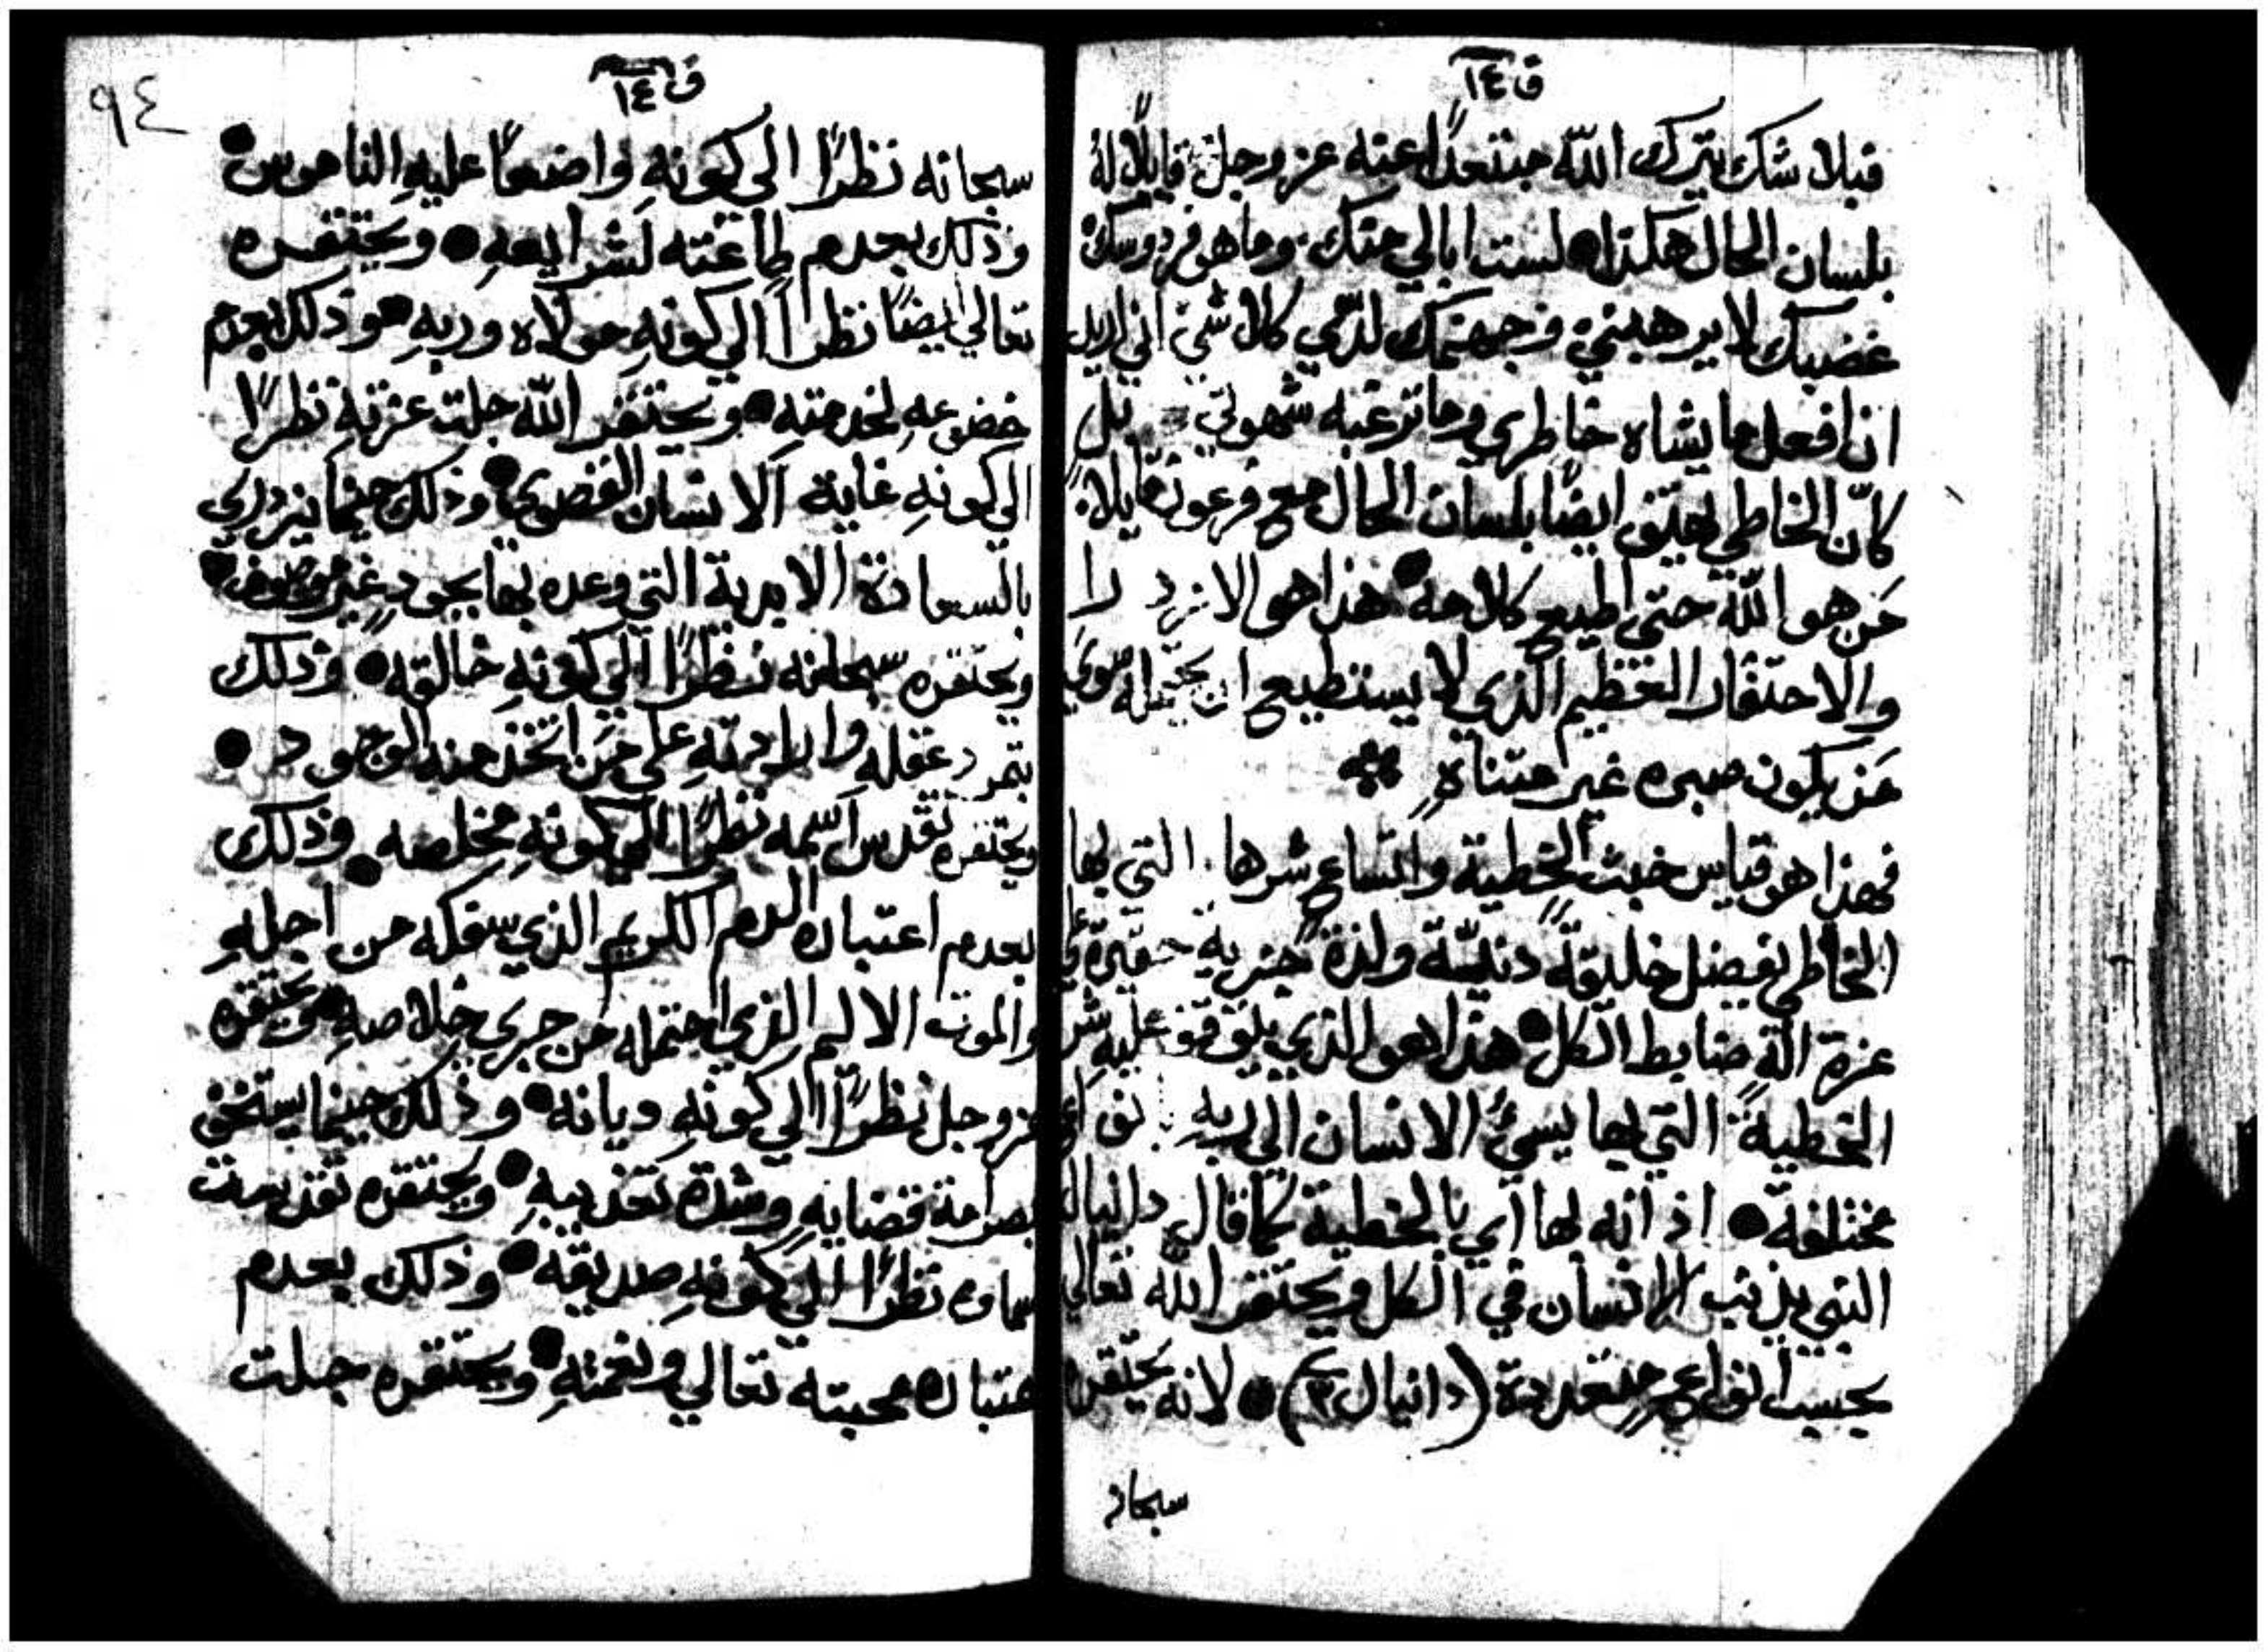 ق ١٤
فبلا شك يترك اللّه مبتعدًا عنه عز وجل قايلًا له
بلسان الحال هكذا ● لست ابالي منك. وما هو فردوسك
غضبك لا يرهبني وجهنمك لدي كلا شي اني اريد
ان افعل ما يشاه خاطري وما ترغبه شهوتي بل
كانّ الخاطي يهتف ايضًا بلسان الحال مع فرعون قايلا:
مَن هو اللّه حتي اطيع كلامه ● هذا هو الازدرا
والاحتقار العظيم الذي لا يستطيع ان يحتمله سوي
مَن يكون صبره غير متناهٍ
فهذا هو قياس خبث الخطية واتساع شرها. التي بها
الخاطي يفضل خليقةً دنيّةً ولذةً حقيرة علي
عزة اللّه ضابط الكل ● هذا هو الذي يتوقف عليه شر
الخطية التي بها يسيُ الانسان الي ربهِ بنواعٍ
مختلفة ● اذ انه بها اي بالخطية كما قال دانيال
النبي يذنب الانسان في الكل ويحتقر اللّه تعالي
بحسب انواعٍ متعددة (دانيال ٣) ● لانه يحتقره
سبحانه
ق ١٤
٩٤
سبحانه نظرًا الي كونهِ واضعًا عليهِ الناموس ●
وذلك بعدم طاعته لشرايعهِ ● ويحتقره
تعالي ايضًا نظرًا الي كونهِ مولاه وربهِ وذلك بعدم
خضوعهِ لخدمته ● ويحتقر اللّه جلت عزتهِ نظرًا
الي كونهِ غاية الانسان القصوي ● وذلك حينما يزدري
بالسعادة الابدية التي وعده بها بجودٍ غير موصوف ●
ويحتقره سبحانه نظرًا الي كونهِ خالقه ● وذلك
بتمرد عقله وارادتهِ علي مَن اتخذ منه الوجود ●
ويحتقره تقدس اسمه نظرًا الي كونهِ مخلصه ● وذلك
بعدم اعتباره الدم الكريم الذي سفكه من اجلهِ
والموت الاليم الذي احتمله من جري خلاصهِ ● ويحتقره
عز وجل نظرًا الي كونهِ ديانه ● وذلك حينما يستخف
بصرامة قضايهِ وشدة تعذيبهِ ● ويحتقره تقدست
اسماوه نظرًا الي كونهِ صديقه ● وذلك بعدم
اعتباره محبته تعالي ونعمتهِ ● ويحتقره جلت